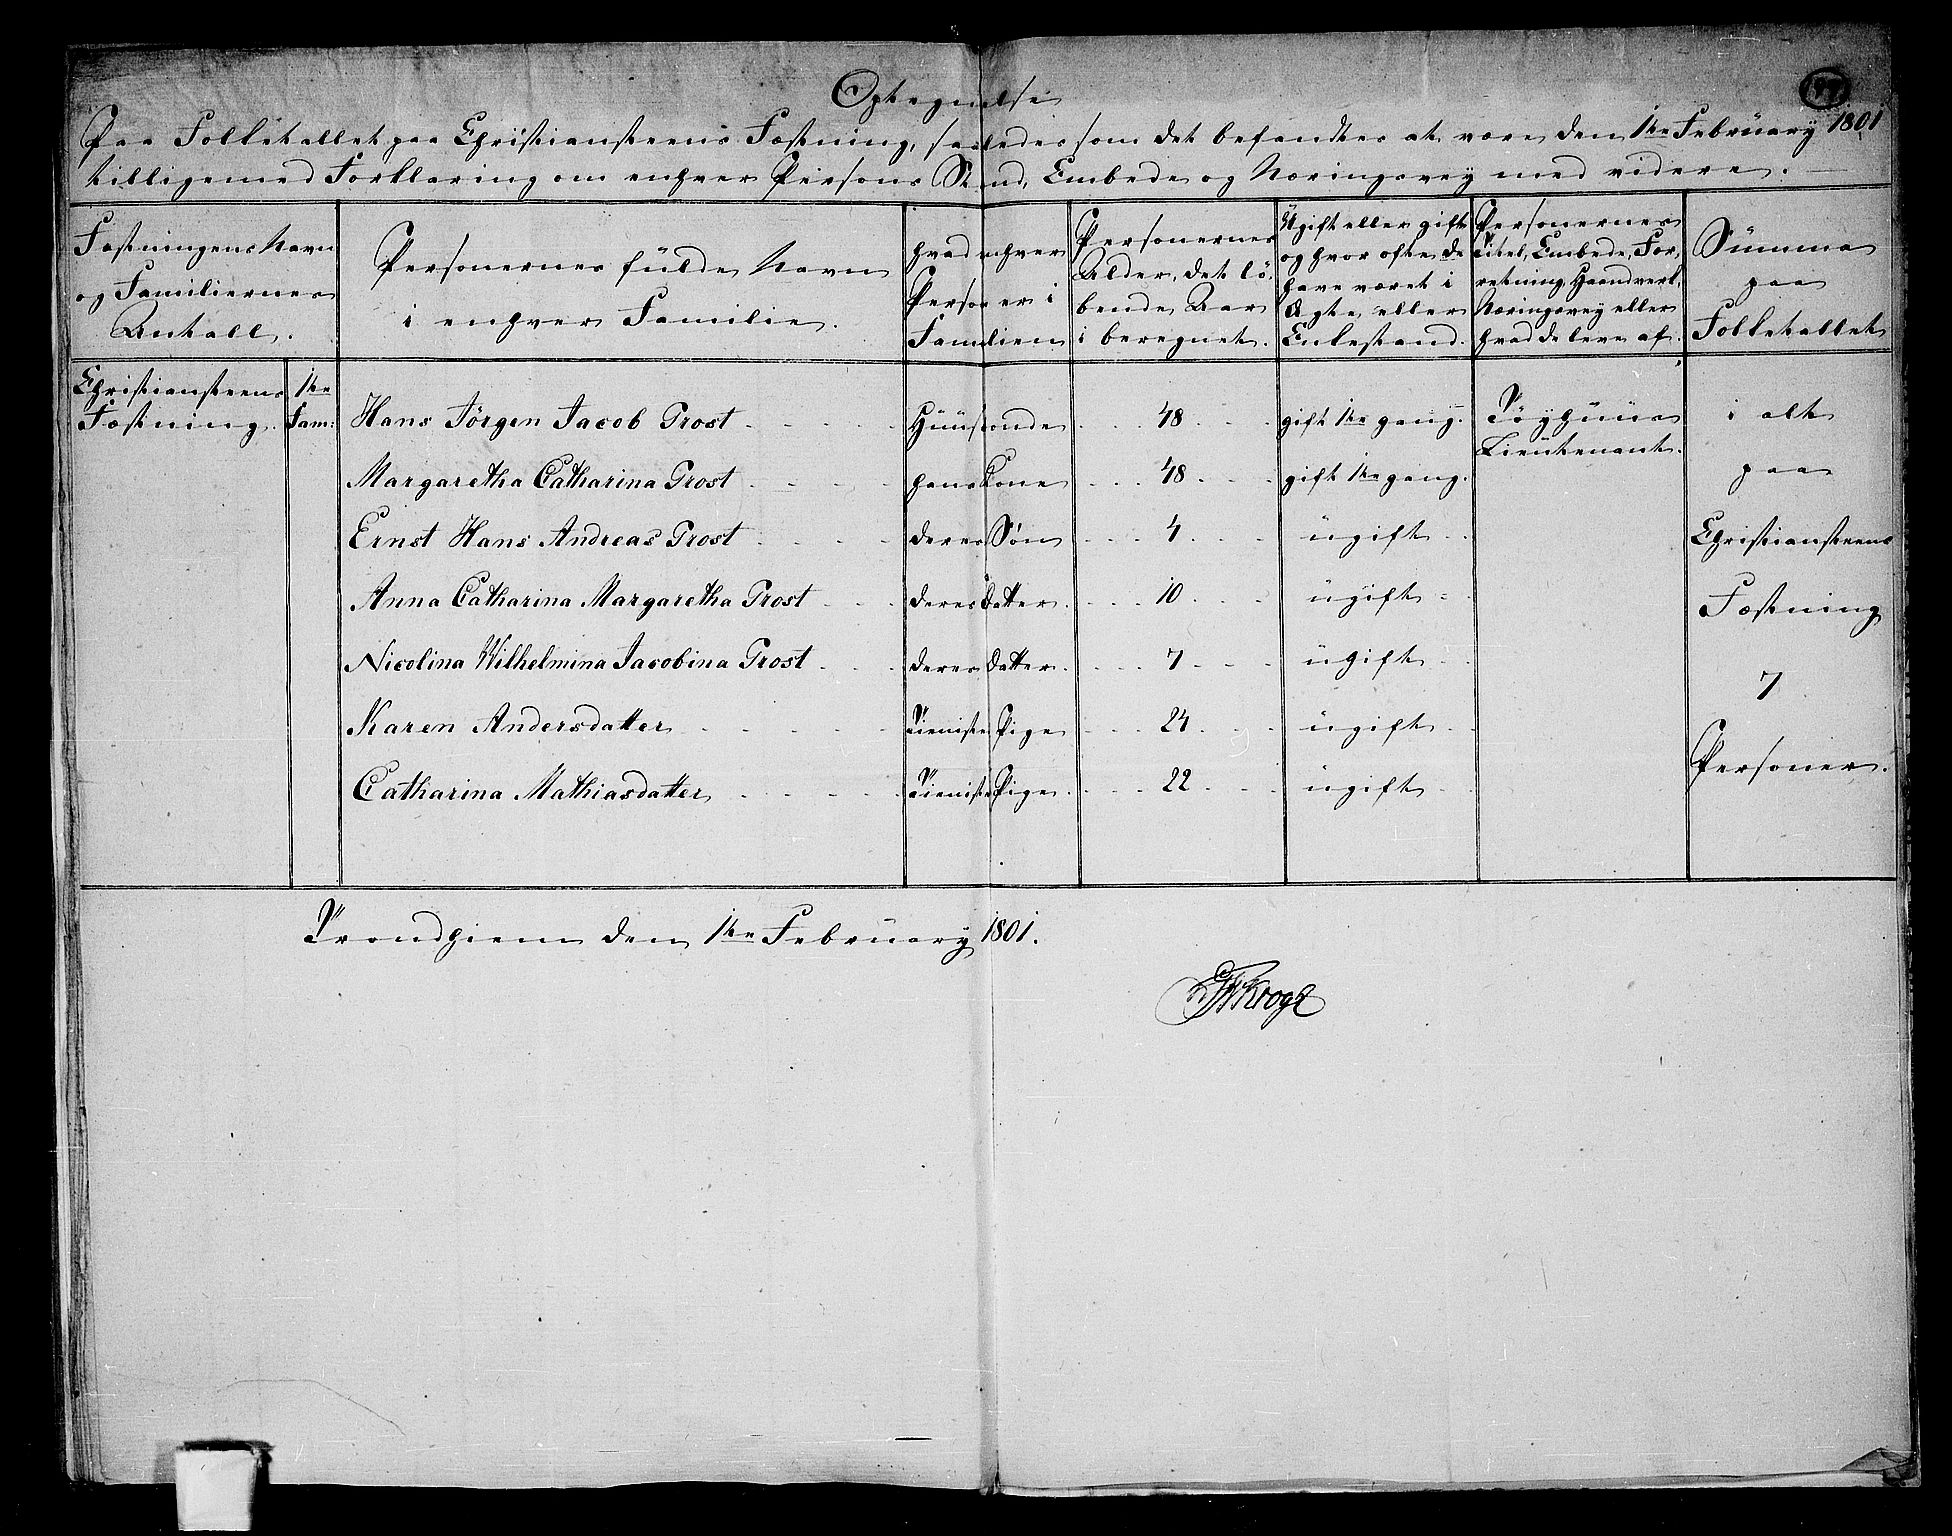 Optegnelse
Paa Folketallet paa Christiansteens Fæstning, saaledes som det befandtes at være den 1te February 1801
tilligemed Forklaring om enhver Persons Stand, Embede og Næringsvey med videre.
Fæstningens Navn og Familiernes Antall.
Personernes fulde Navn i enhver Familie.
hvad enhver Person er i Familien
Personernes Alder, det löbende Aar iberegnet.
Ugift eller gift og hvor ofte de have været i Ægte eller Enkestand.
Personernes Titel, Embede, Forretning, Haandverk, Næringsvey eller hvad de leve af.
Summa paa Folketallet
Christiansteens Fæstning. 1te Fam: Hans Jörgen Jacob Trost Huusbonde 48 gift 1te gang. Töyhuus Lieutenant. i alt
Margaretha Catharina Trost hans Kone 48 gift 1te gang. paa
Ernst Hans Andreas Trost deres Søn 4 ugift Christiansteens
Anna Catharina Margaretha Trost deres Datter. 10 ugift Fæstning
Nicolina Wilhelmina Jacobina Trost deres Datter. 7 ugift 7
Karen Andersdatter Tieniste Pige 24 ugift Personer.
Catharina Mathiasdatter Tieniste Pige. 22 ugift
Trondhiem den 1te February 1801.
Krogh